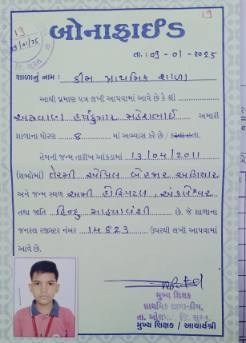 19
બોનાફાઈડ
તા. : 09-01-2025
શાળાનું નામ : કીમ પ્રાથમિક શાળા
આથી પ્રમાણ પત્ર લખી આપવામાં આવે છે કે શ્રી
હર્ષકુમાર મહેશભાઈ અમારી
શાળાના ધોરણ 8 માં અભ્યાસ કરે છે
તેમની જન્મ તારીખ આંકડામાં 13/04/2011
(શબ્દોમાં) તેરમી એપ્રિલ બે હજાર અગિયાર
અને જન્મ સ્થળ હોસ્પિટલ, અંકલેશ્વર
તથા જાતિ હિન્દુ છે. જે શાળાના
જનરલ રજીસ્ટર નંબર 14823 ઉપરથી લખી આપવામાં
આવે છે.
મુખ્ય શિક્ષક
મુખ્ય શિક્ષક / આચાર્યશ્રી